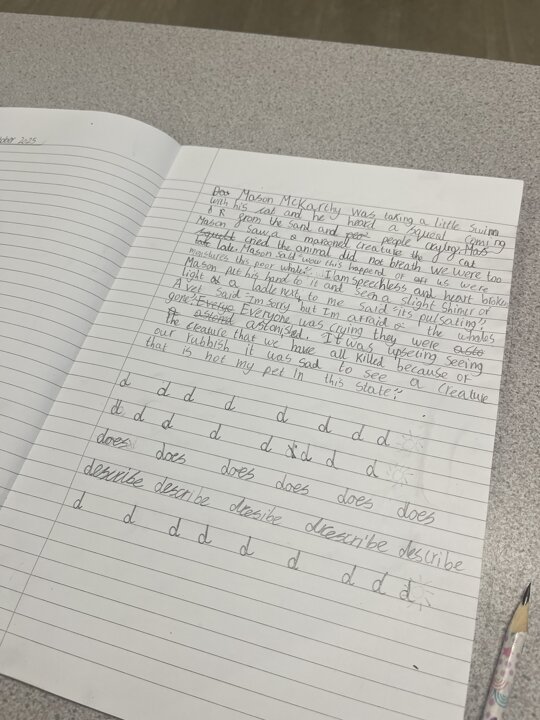 tober 2025
Dear Mason McKarchy was taking a little swim
with his cat and he heard a squeal coming
from the sand and people crying. Has
Mason saw a marooned creature the cat
squelt cried the animal did not breath we were too
late late. Mason said "wow this happend of us were
moistures this poor whale". I am speechless and heart broken
Mason put his hand to it and seen a slight shimer or
light a ladie next to me said "its pulsating",
A vet said "Im sorry but Im afraid the whales
gone". Everye Everyone was crying they were
astond astonished. It was upseting seeing
the creature that we have all killed because of
our rubbish it was sad to see a creature
that is not my pet in this state".
d d d d d d d d
d d d d d d d d
does does does does does does
describe describe dresibe drescribe describe
d d d d d d d d d